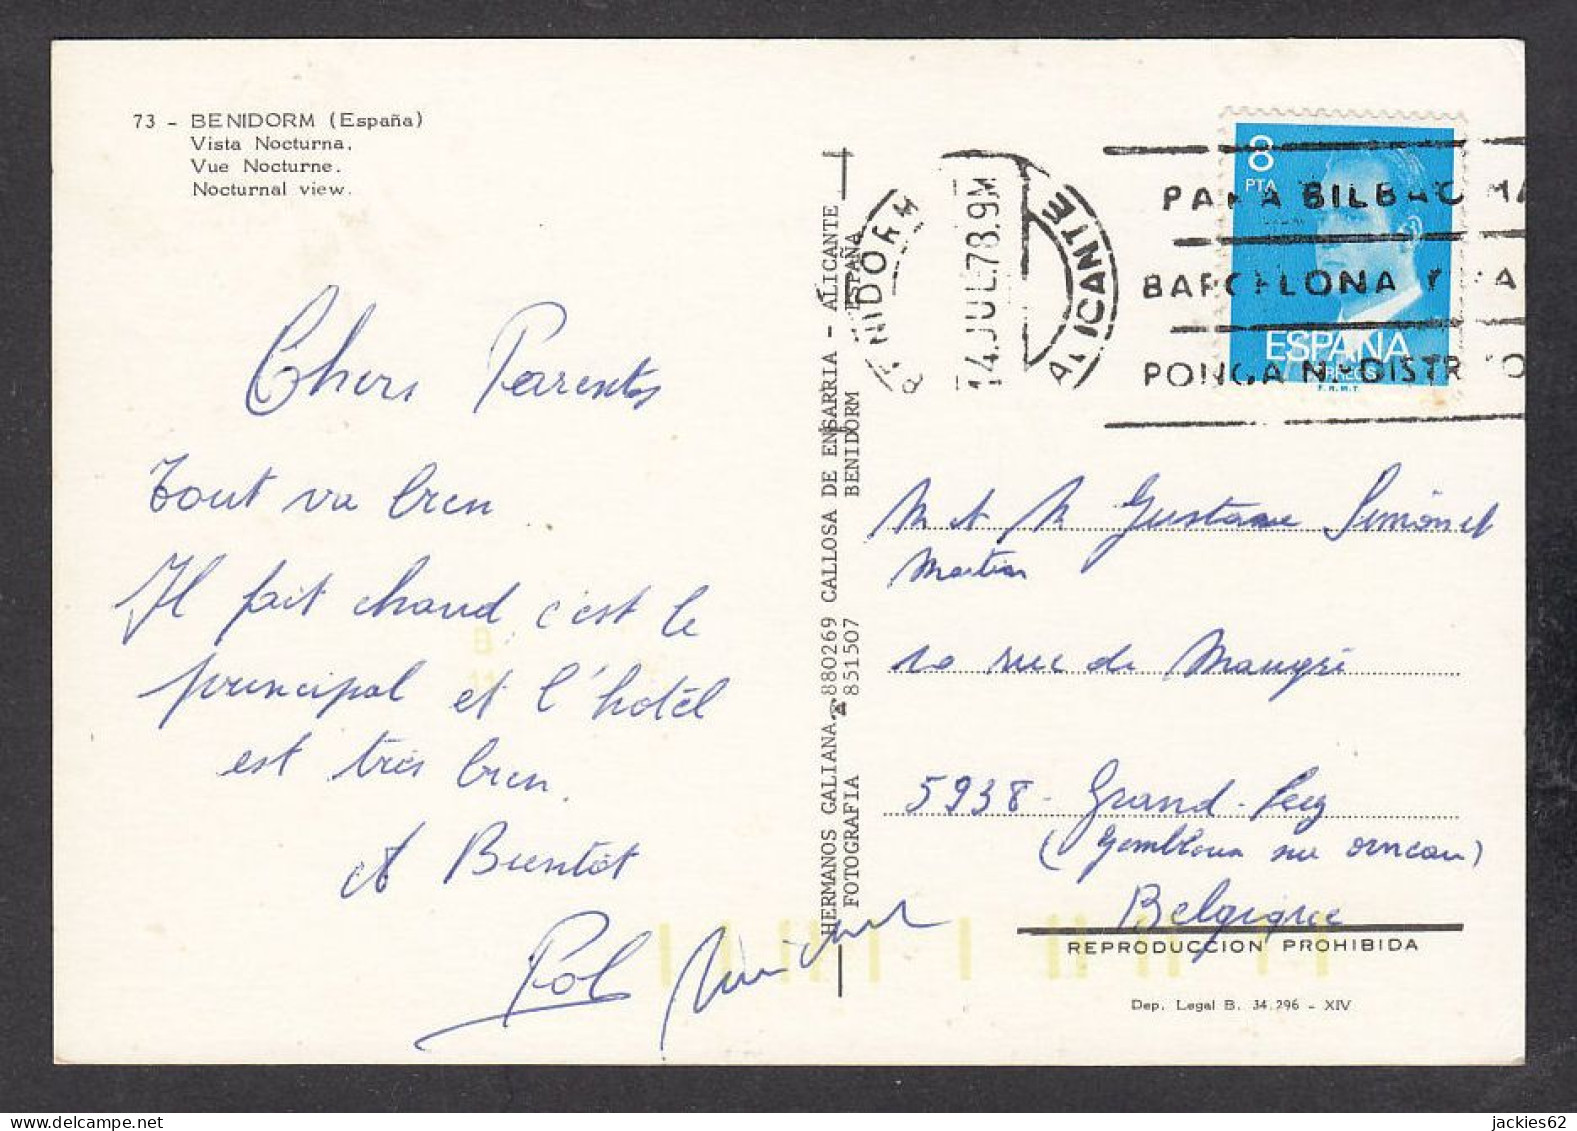 73 - BENIDORM (España)
Vista Nocturna.
Vue Nocturne.
Nocturnal view.
Chers Parents
Tout va bien
Il fait chaud c'est le
principal et l'hotêl
est très bien.
A Bientôt
Pol
HERMANOS GALIANA. ☎ 880269 CALLOSA DE ENSARRIA - ALICANTE
FOTOGRAFIA ☎ 851507 BENIDORM ESPAÑA
BENIDORM
14.JUL.78.9M
ALICANTE
8
PTA
ESPAÑA
CORREOS
F.N.M.T.
PARA BILBAO MA
BARCELONA
PONGA N. DISTRITO
M et M Gustave Simonet
Martin
10 rue de Maugré
5938 - Grand-Leez
(Gembloux sur orneau)
Belgique
REPRODUCCION PROHIBIDA
Dep. Legal B. 34.296 - XIV
www.delcampe.net
jackies62